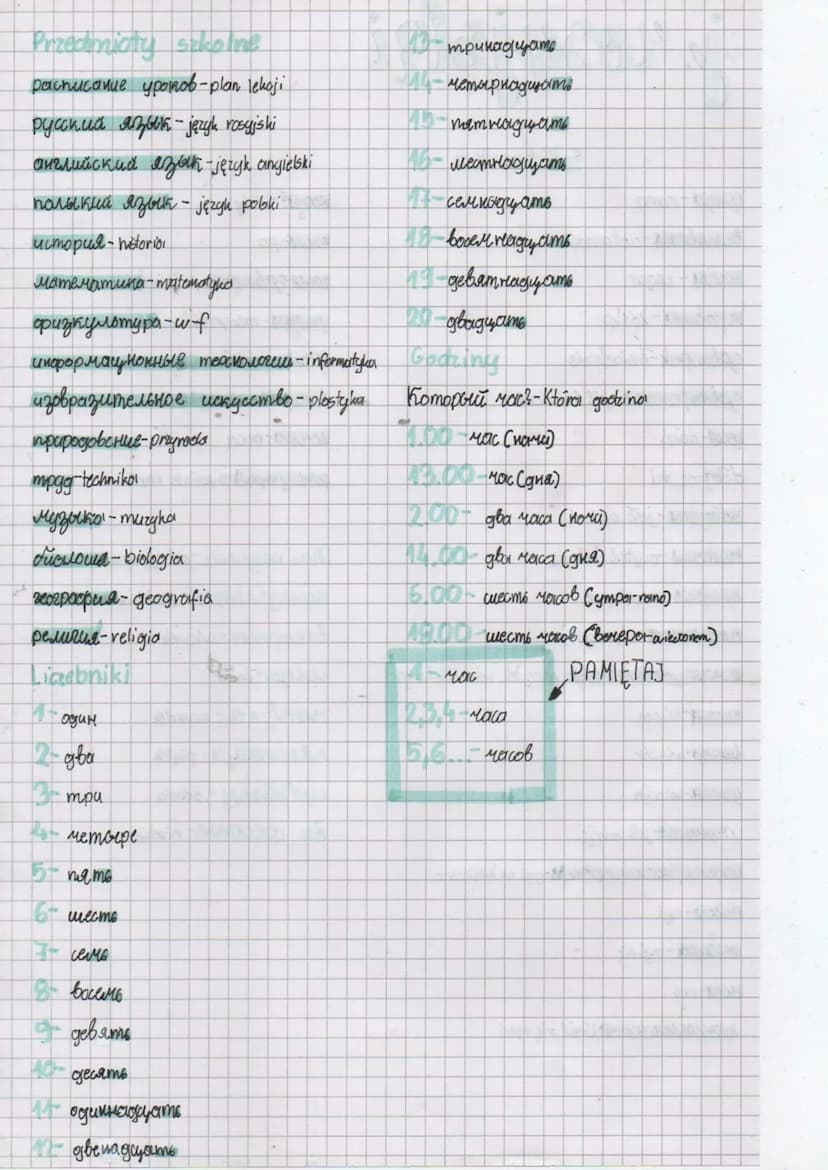 Przedmioty szkolne
расписание уроков-plan lekcji
русский язык-język rosyjski
английский язык-język angielski
польский язык- język polski
история-historia
математика-matematyka
физкультура-w-f
информационные технологии-informatyka
изобразительное искусство-plastyka
природовение-przyroda
труд-technika
музыка-muzyka
биология-biologia
география-geografia
религия-religia
Liczebniki
1-один
2-два
3-три
4-четыре
5-пять
6-шесть
7-семь
8-восемь
9-девять
10-десять
11-одиннадцать
12-двенадцать
13-тринадцать
14-четырнадцать
15-пятнадцать
16-шестнадцать
17-семнадцать
18-восемнадцать
19-девятнадцать
20-двадцать
Godziny
Который час?-Która godzina
1.00-час (ночи)
13.00-час (дня)
2.00- два часа (ночи)
14.00-два часа (дня)
6.00- шесть часов (утра-rano)
18.00-шесть часов (вечера-wieczorem)
1-час
PAMIĘTAJ
2,3,4-часа
5,6...-часов